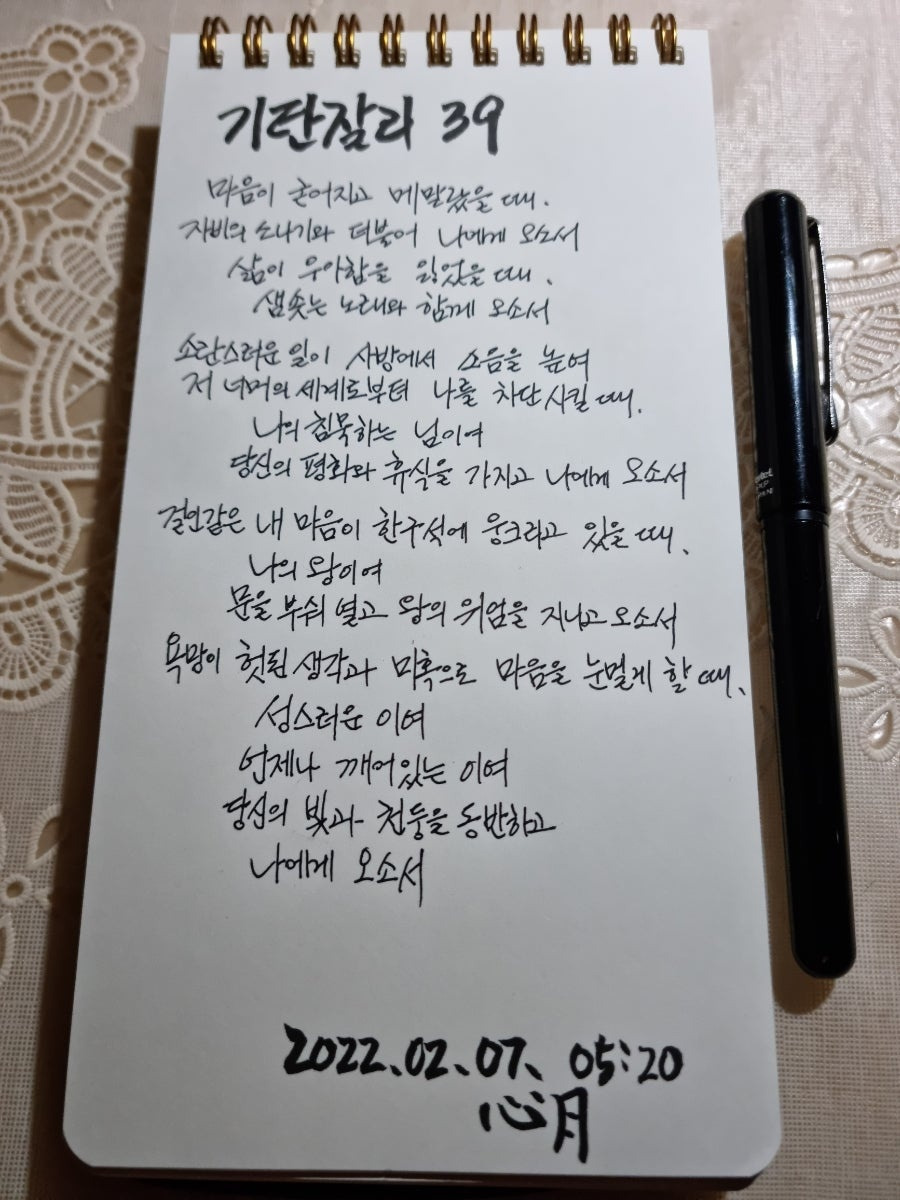 기탄잘리 39
마음이 굳어지고 메말랐을 때.
자비의 소나기와 더불어 나에게 오소서
삶이 우아함을 잃었을 때.
샘솟는 노래와 함께 오소서
소란스러운 일이 사방에서 소음을 높여
저 너머의 세계로부터 나를 차단시킬 때.
나의 침묵하는 님이여
당신의 평화와 휴식을 가지고 나에게 오소서
걸인같은 내 마음이 한구석에 웅크리고 있을 때、
나의 왕이여
문을 부숴 열고 왕의 위엄을 지니고 오소서
욕망이 헛된 생각과 미혹으로 마음을 눈멀게 할 때、
성스러운 이여
언제나 깨어있는 이여
당신의 빛과 천둥을 동반하고
나에게 오소서
2022.02.07、 05:20
心月